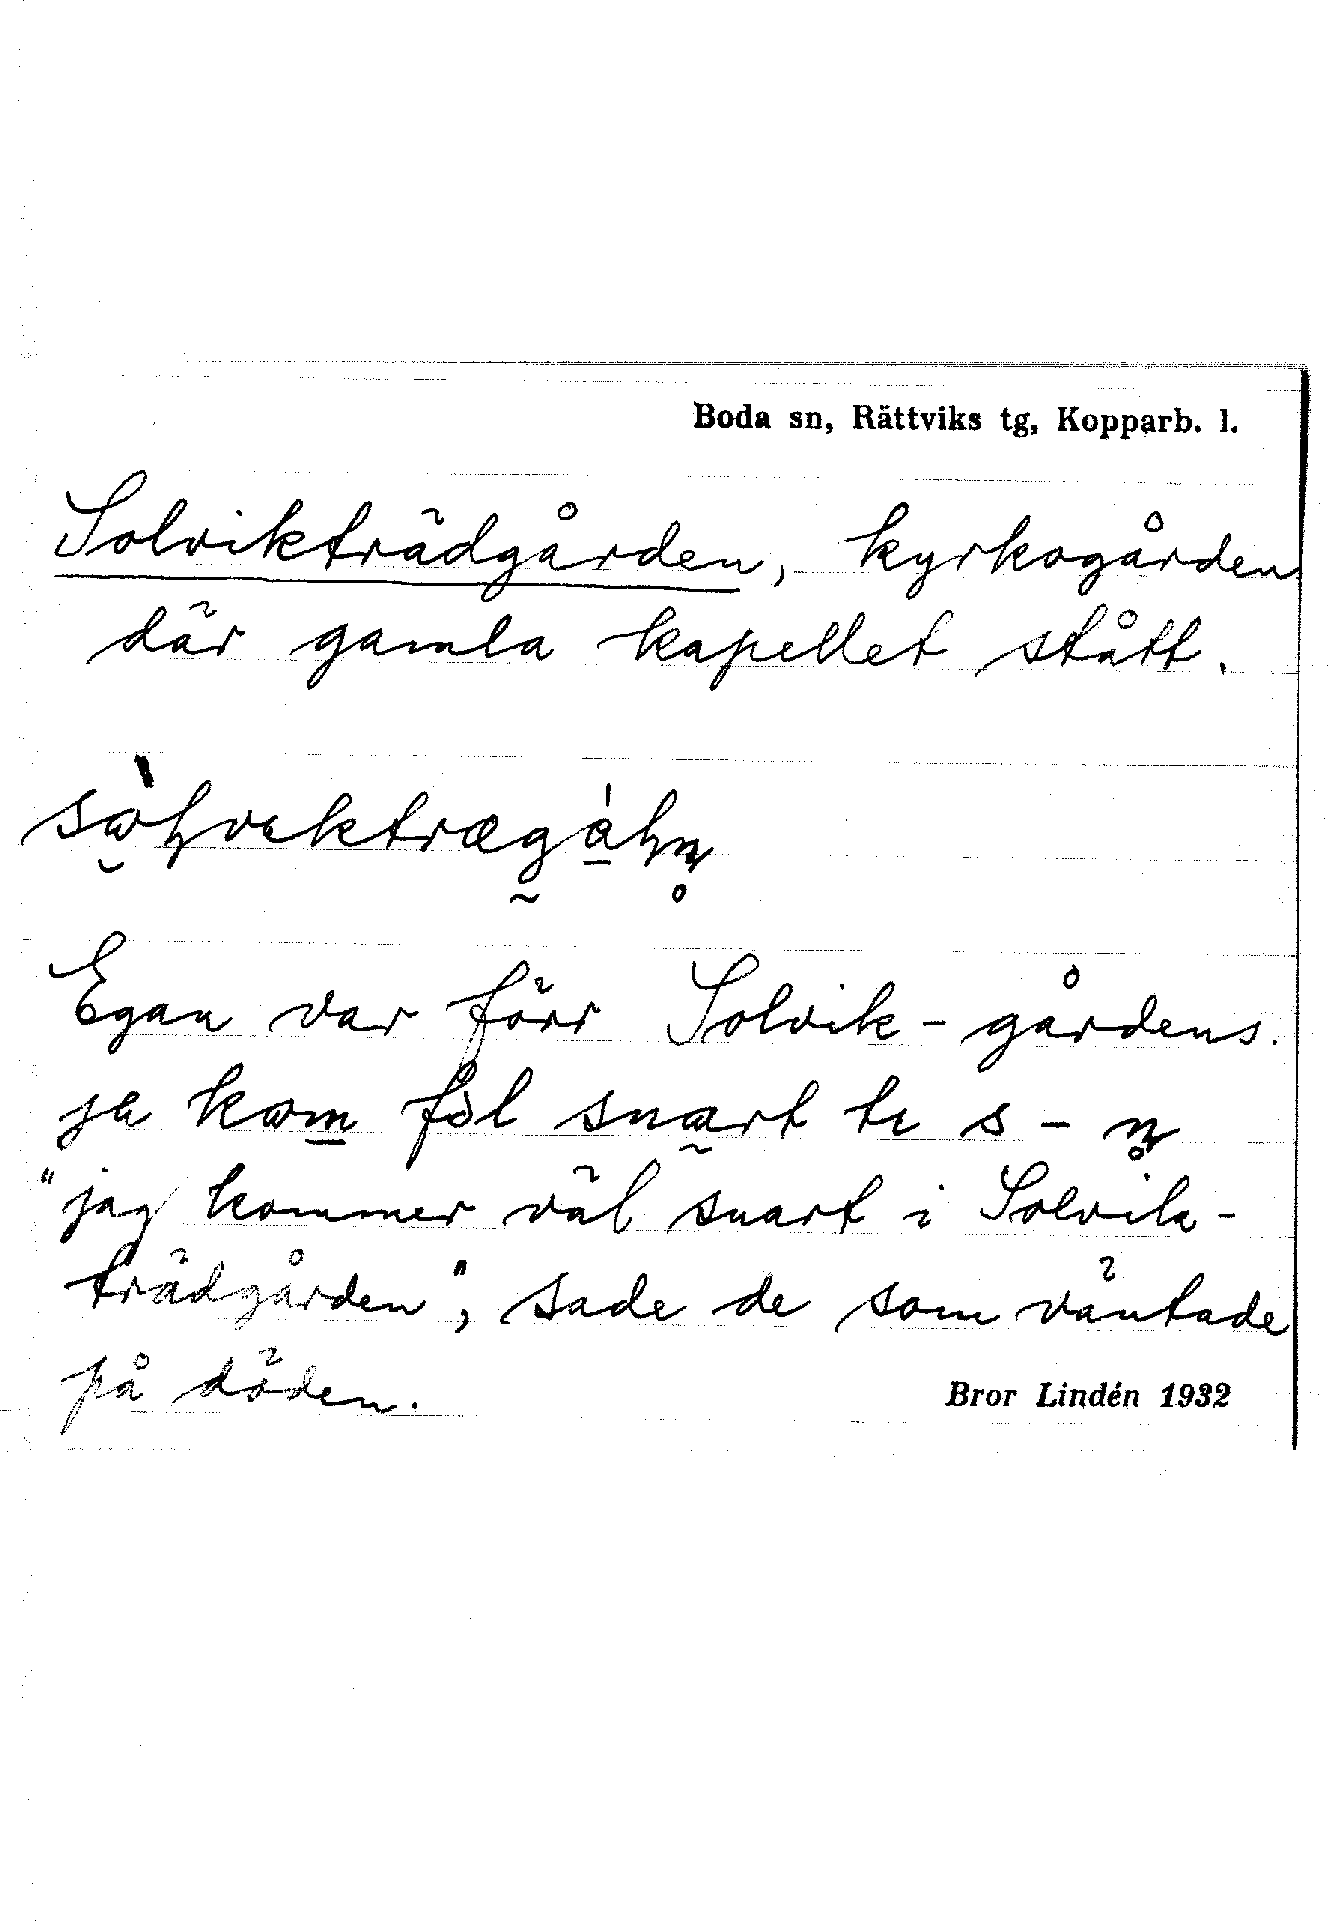 Boda sn, Rättviks tg, Kopparb. l.
Solvikträdgården, kyrkogården
där gamla kapellet stått.
Egan var förr Solvik-gårdens.
ja kom snart s-
"jag kommer väl snart i Solvik-
trädgården", sade de som väntade
på döden.
Bror Lindén 1932